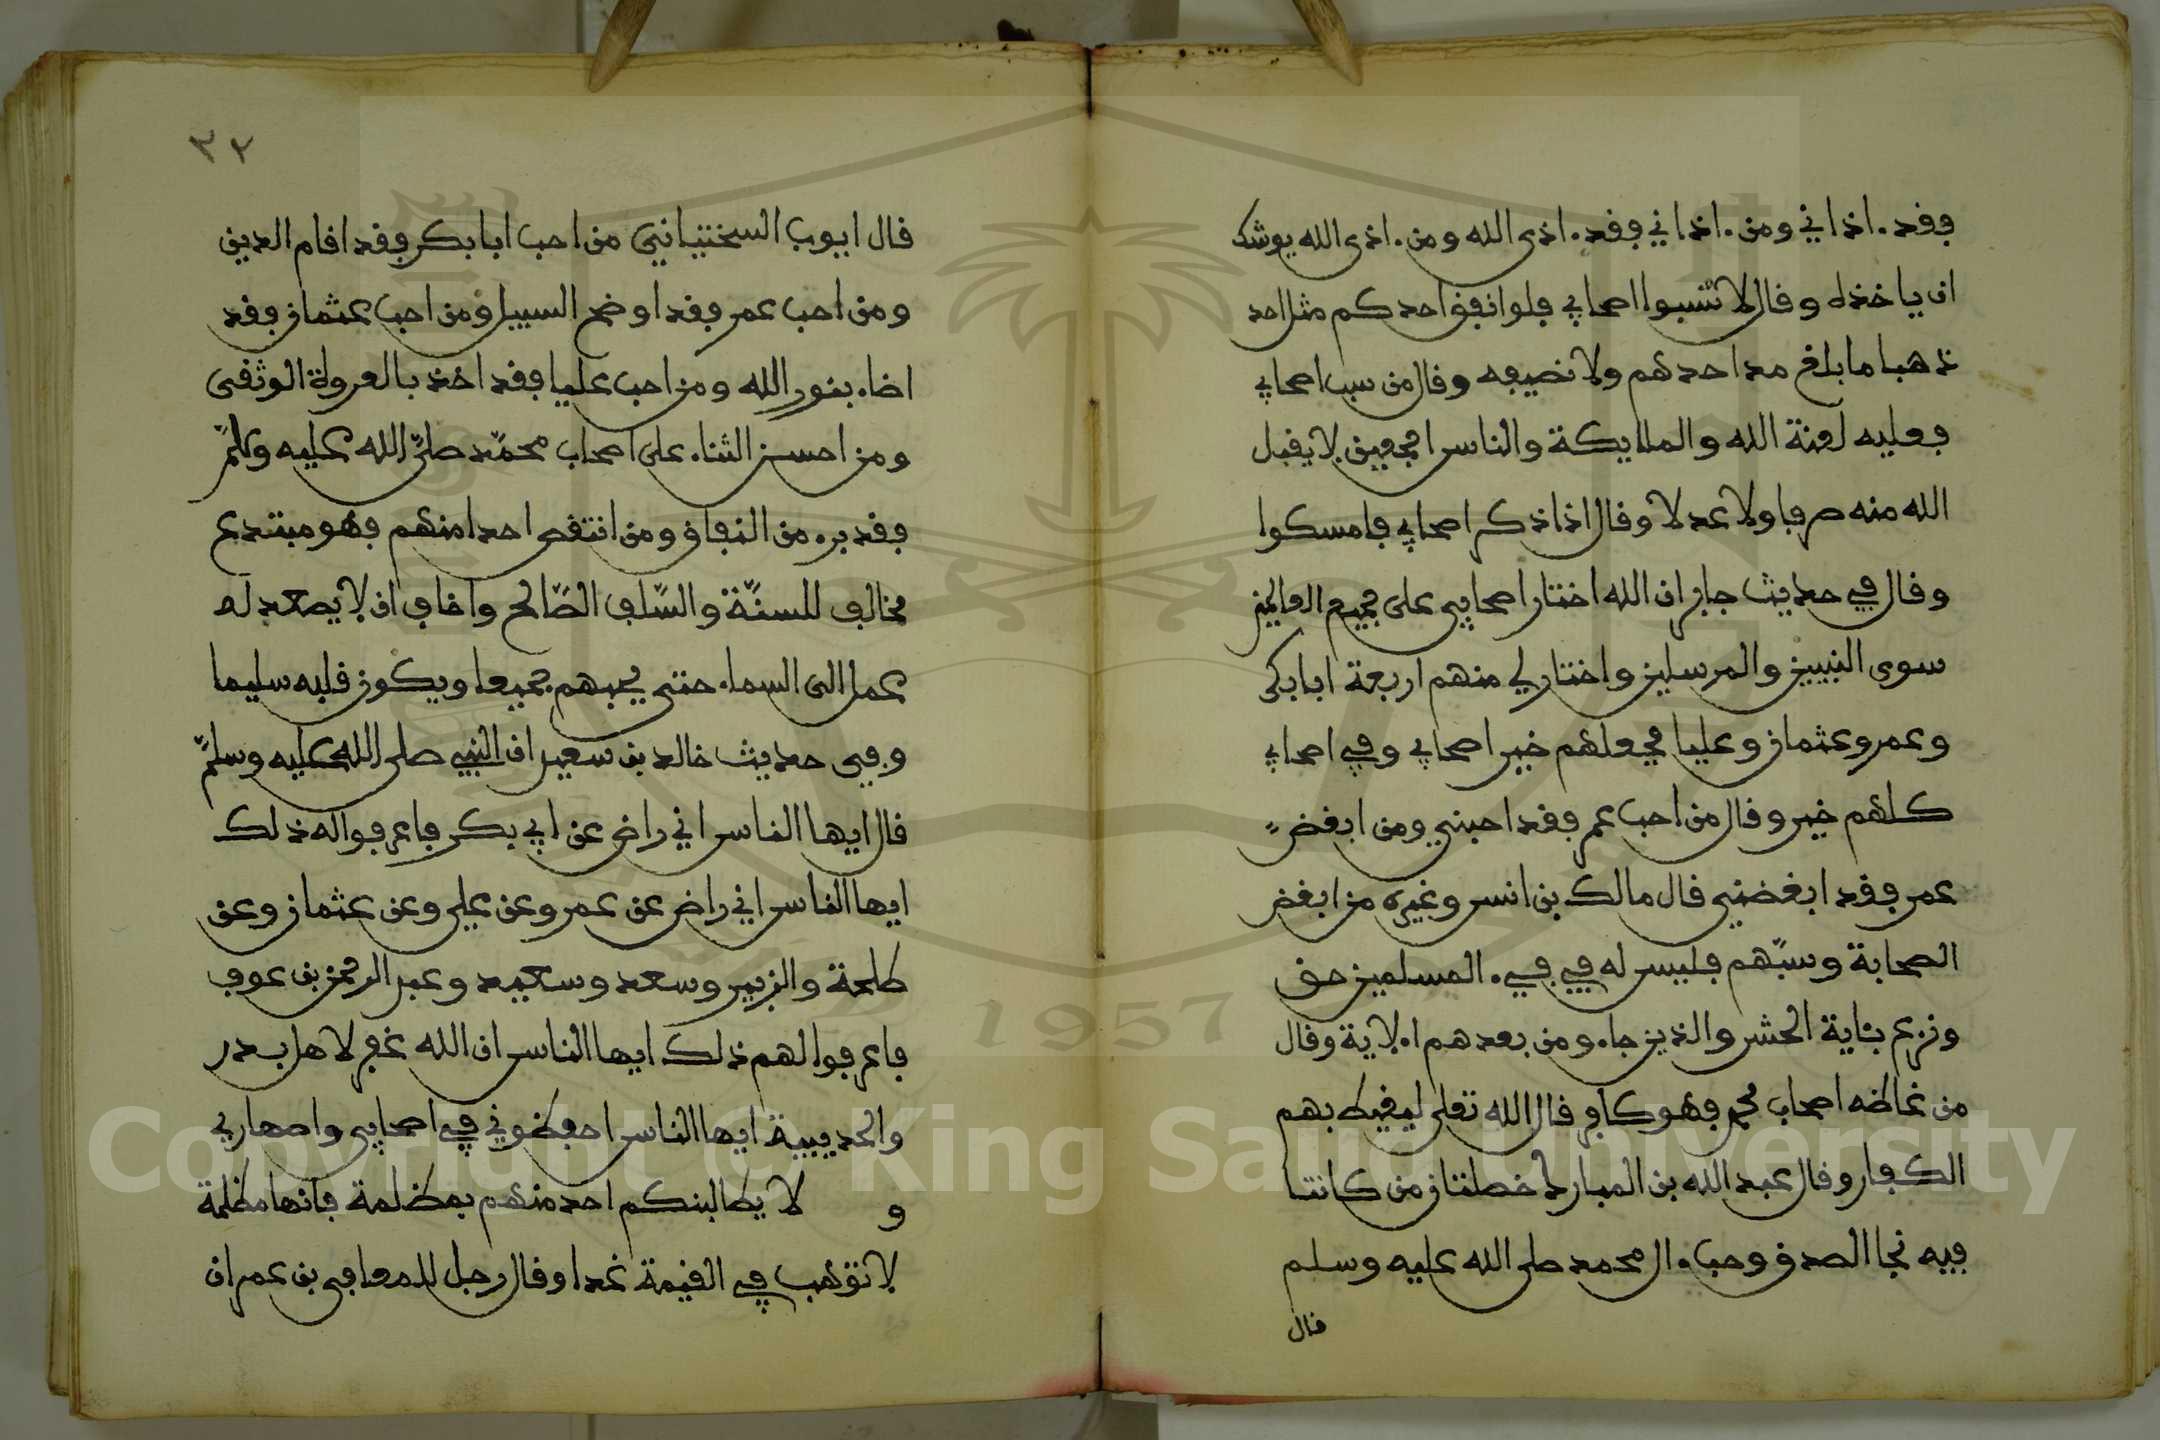 فقد اذاني ومن اذاني فقد اذى الله ومن اذى الله يوشك
ان ياخذه وقال لا تسبوا اصحابي فلو انفق احدكم مثل احد
ذهبا ما بلغ مد احدهم ولا نصيفه وقال من سب اصحابي
فعليه لعنة الله والملايكة والناس اجمعين لا يقبل
الله منه صرفا ولا عدلا وقال اذا ذكر اصحابي فامسكوا
وقال في حديث جابر ان الله اختار اصحابي على جميع العالمين
سوى النبيين والمرسلين واختار لي منهم اربعة ابا بكر
وعمر وعثمان وعليا فجعلهم خير اصحابي وفي اصحابي
كلهم خير وقال من احب عمر فقد احبني ومن ابغض
عمر فقد ابغضني قال مالك بن انس وغيره من ابغض
الصحابة وسبّهم فليس له في فيء المسلمين حق
ونزع بئاية الحشر والذين جاءو من بعدهم الاية وقال
من غاظه اصحاب محمد فهو كافر قال الله تعلى ليغيظ بهم
الكفار وقال عبد الله بن المبارك خصلتان من كانتا
فيه نجا الصدق وحب ءال محمد صلى الله عليه وسلم
قال
٣٢
قال ايوب السختياني من احب ابا بكر فقد اقام الدين
ومن احب عمر فقد اوضح السبيل ومن احب عثمان فقد
اضاء بنور الله ومن احب عليا فقد اخذ بالعروة الوثقى
ومن احسن الثناء على اصحاب محمّد صلّى الله عليه وسلّم
فقد برء من النفاق ومن انتقص احدا منهم فهو مبتدع
مخالف للسنّة والسّلف الصّالح واخاف ان لا يصعد له
عمل الى السماء حتى يحبهم جميعا ويكون قلبه سليما
وفي حديث خالد بن سعيد ان النبي صلى الله عليه وسلّم
قال ايها الناس اني راض عن ابي بكر فاعرفوا له ذلك
ايها الناس اني راض عن عمر وعن علي وعن عثمان وعن
طلحة والزبير وسعد وسعيد وعبد الرحمن بن عوف
فاعرفوا لهم ذلك ايها الناس ان الله غفر لاهل بدر
والحديبية ايها الناس احفظوني في اصحابي واصهاري
و لا يطالبنكم احد منهم بمظلمة فانها مظلمة
لا توهب في القيمة غدا وقال رجل للمعافى بن عمران
1957
Copyright © King Saud University